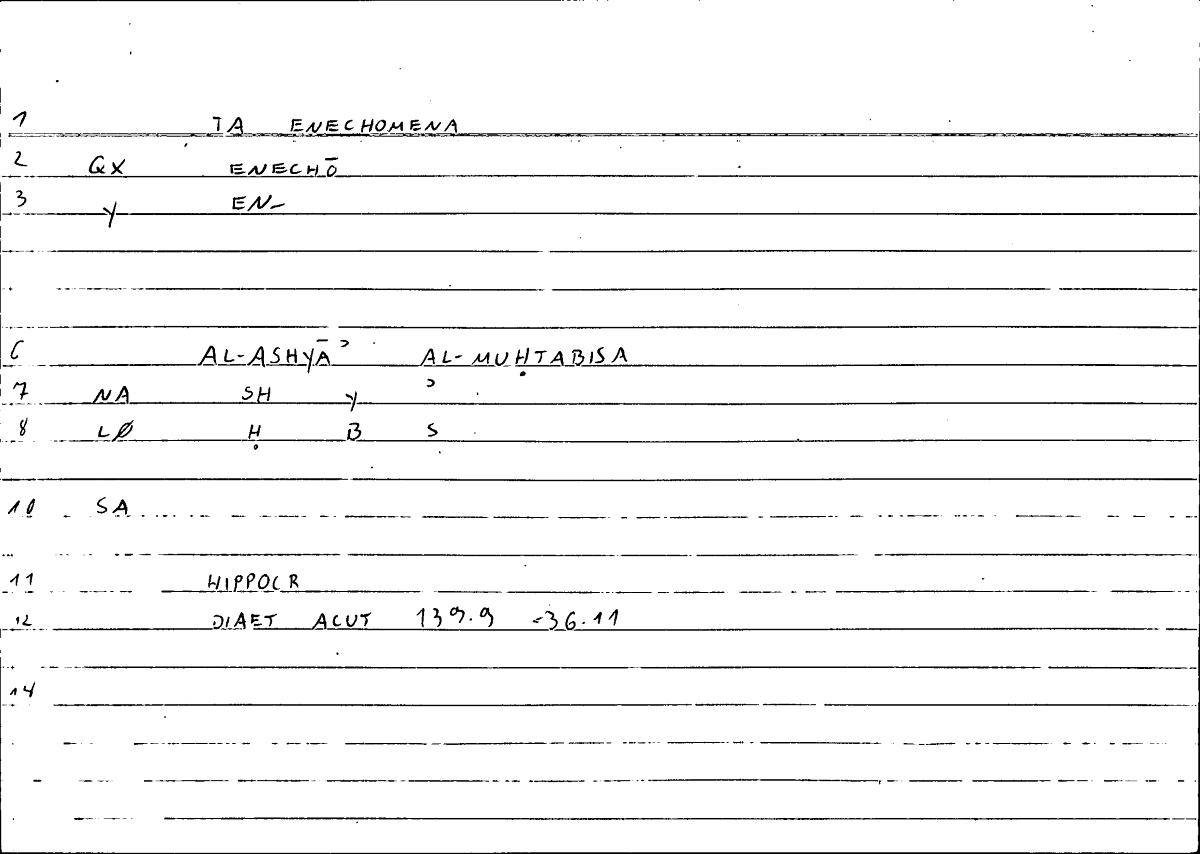 1 TA ENECHOMENA
2 QX ENECHŌ
3 Y EN-
6 AL-ASHYĀʾ AL-MUḤTABISA
7 NA SH Y ʾ
8 LØ Ḥ B S
10 SA
11 HIPPOCR
12 DIAET ACUT 139.9 =36.11
14